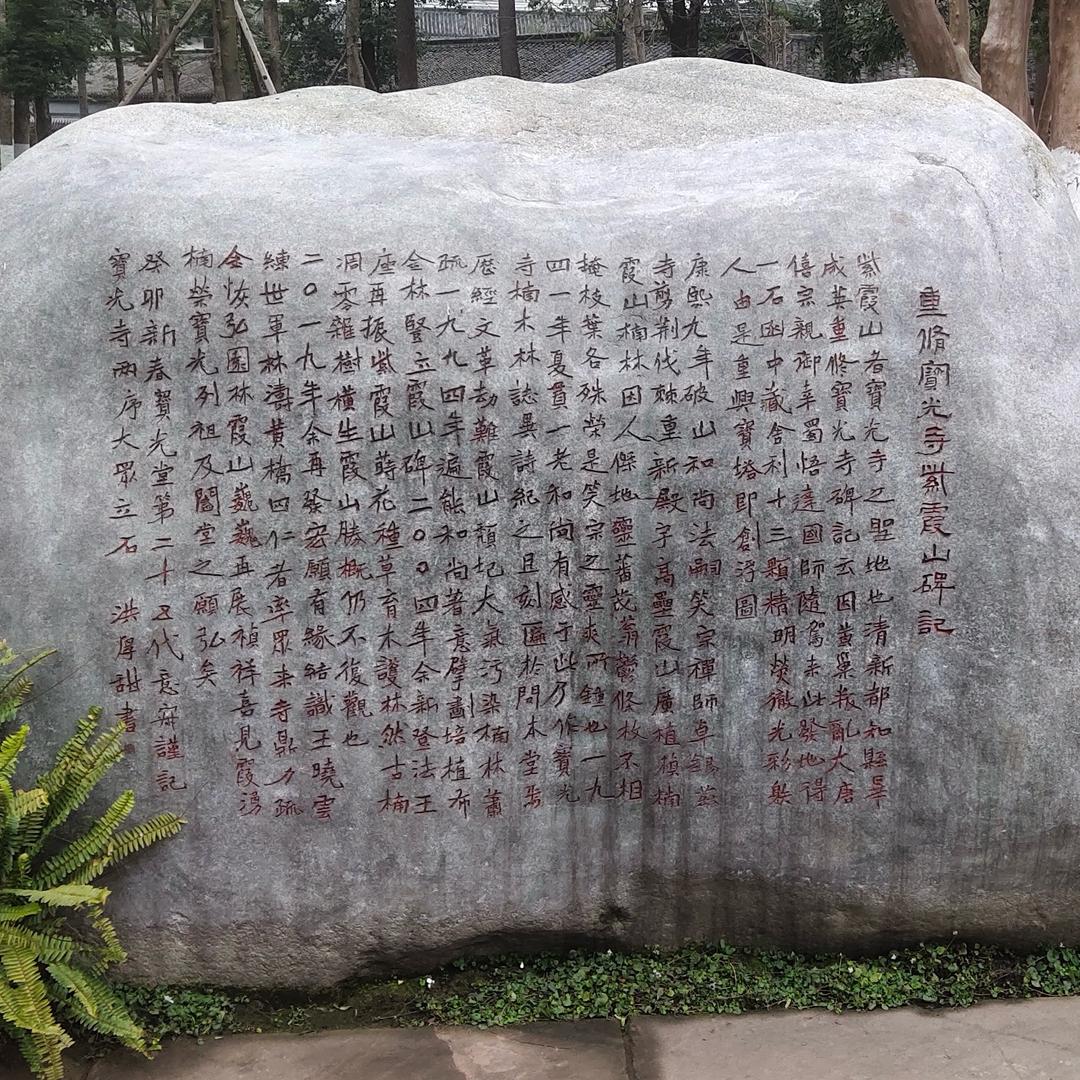 重脩寶光寺紫霞山碑記
紫霞山者寶光寺之聖地也清新都知縣畢
成華重修寶光寺碑記云因黃巢叛亂大唐
僖宗親御幸蜀悟達國師隨駕来此發地得
一石函中藏舍利十三顆精明熒徹光彩射
人由是重興寶塔即創浮圖
康熙九年破山和尚法嗣笑宗禪師卓錫兹
寺剪荆伐棘重新殿宇高壘霞山廣植楨楠
霞山楠林因人傑地靈蕃茂蓊鬱修枚不相
掩枝葉各殊榮是笑宗之靈爽所鍾也一九
四一年夏貫一老和尚有感于此乃作寶光
寺楠木林誌異詩紀之且刻匾於問本堂焉
歷經文革劫難霞山頹圮大氣污染楠林蕭
疏一九九四年遍能和尚著意擘畫培植布
金林竪立霞山碑二〇〇四年余新登法王
座再振紫霞山蒔花種草育木護林然古楠
凋零雜樹橫生霞山勝概仍不復觀也
二〇一九年余再發宏願有緣結識王曉雲
練世軍林濤黄橋四仁者率眾来寺鼎力疏
金恢弘園林霞山巍巍再展楨祥喜見霞湧
楠榮寶光列祖及闔堂之願弘矣
癸卯新春寶光堂第二十五代意寂謹記
寶光寺兩序大眾立石 洪厚甜書